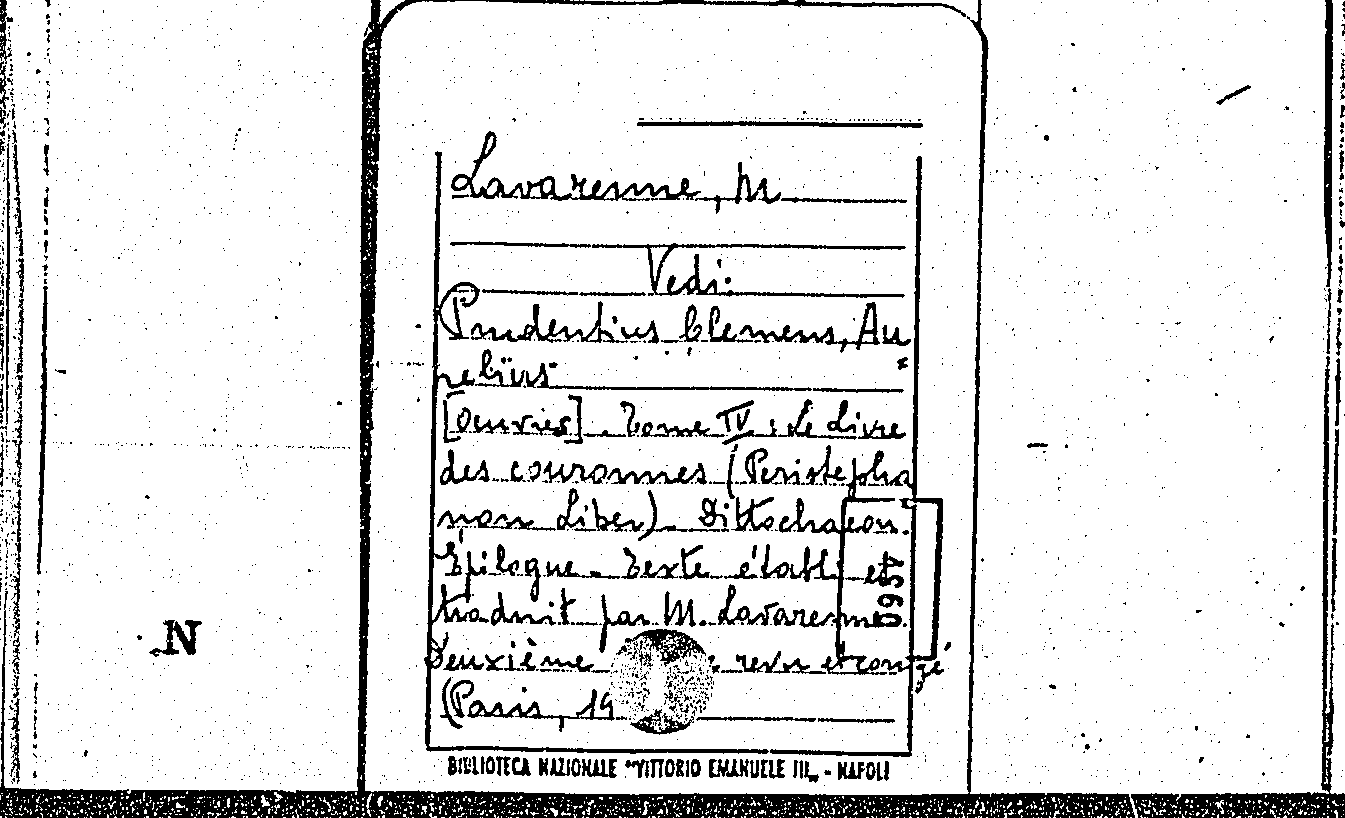 Lavarenne, M.
Vedi:
Prudentius Clemens, Au
relius
[Oeuvres]. Tome IV: Le Livre
des couronnes (Peristepha
non Liber). Dittochaeon.
Épilogue. Texte établi et
traduit par M. Lavarenne.
Deuxième revu et corrigé
(Paris, 19
BIBLIOTECA NAZIONALE "VITTORIO EMANUELE III„ - NAPOLI
N